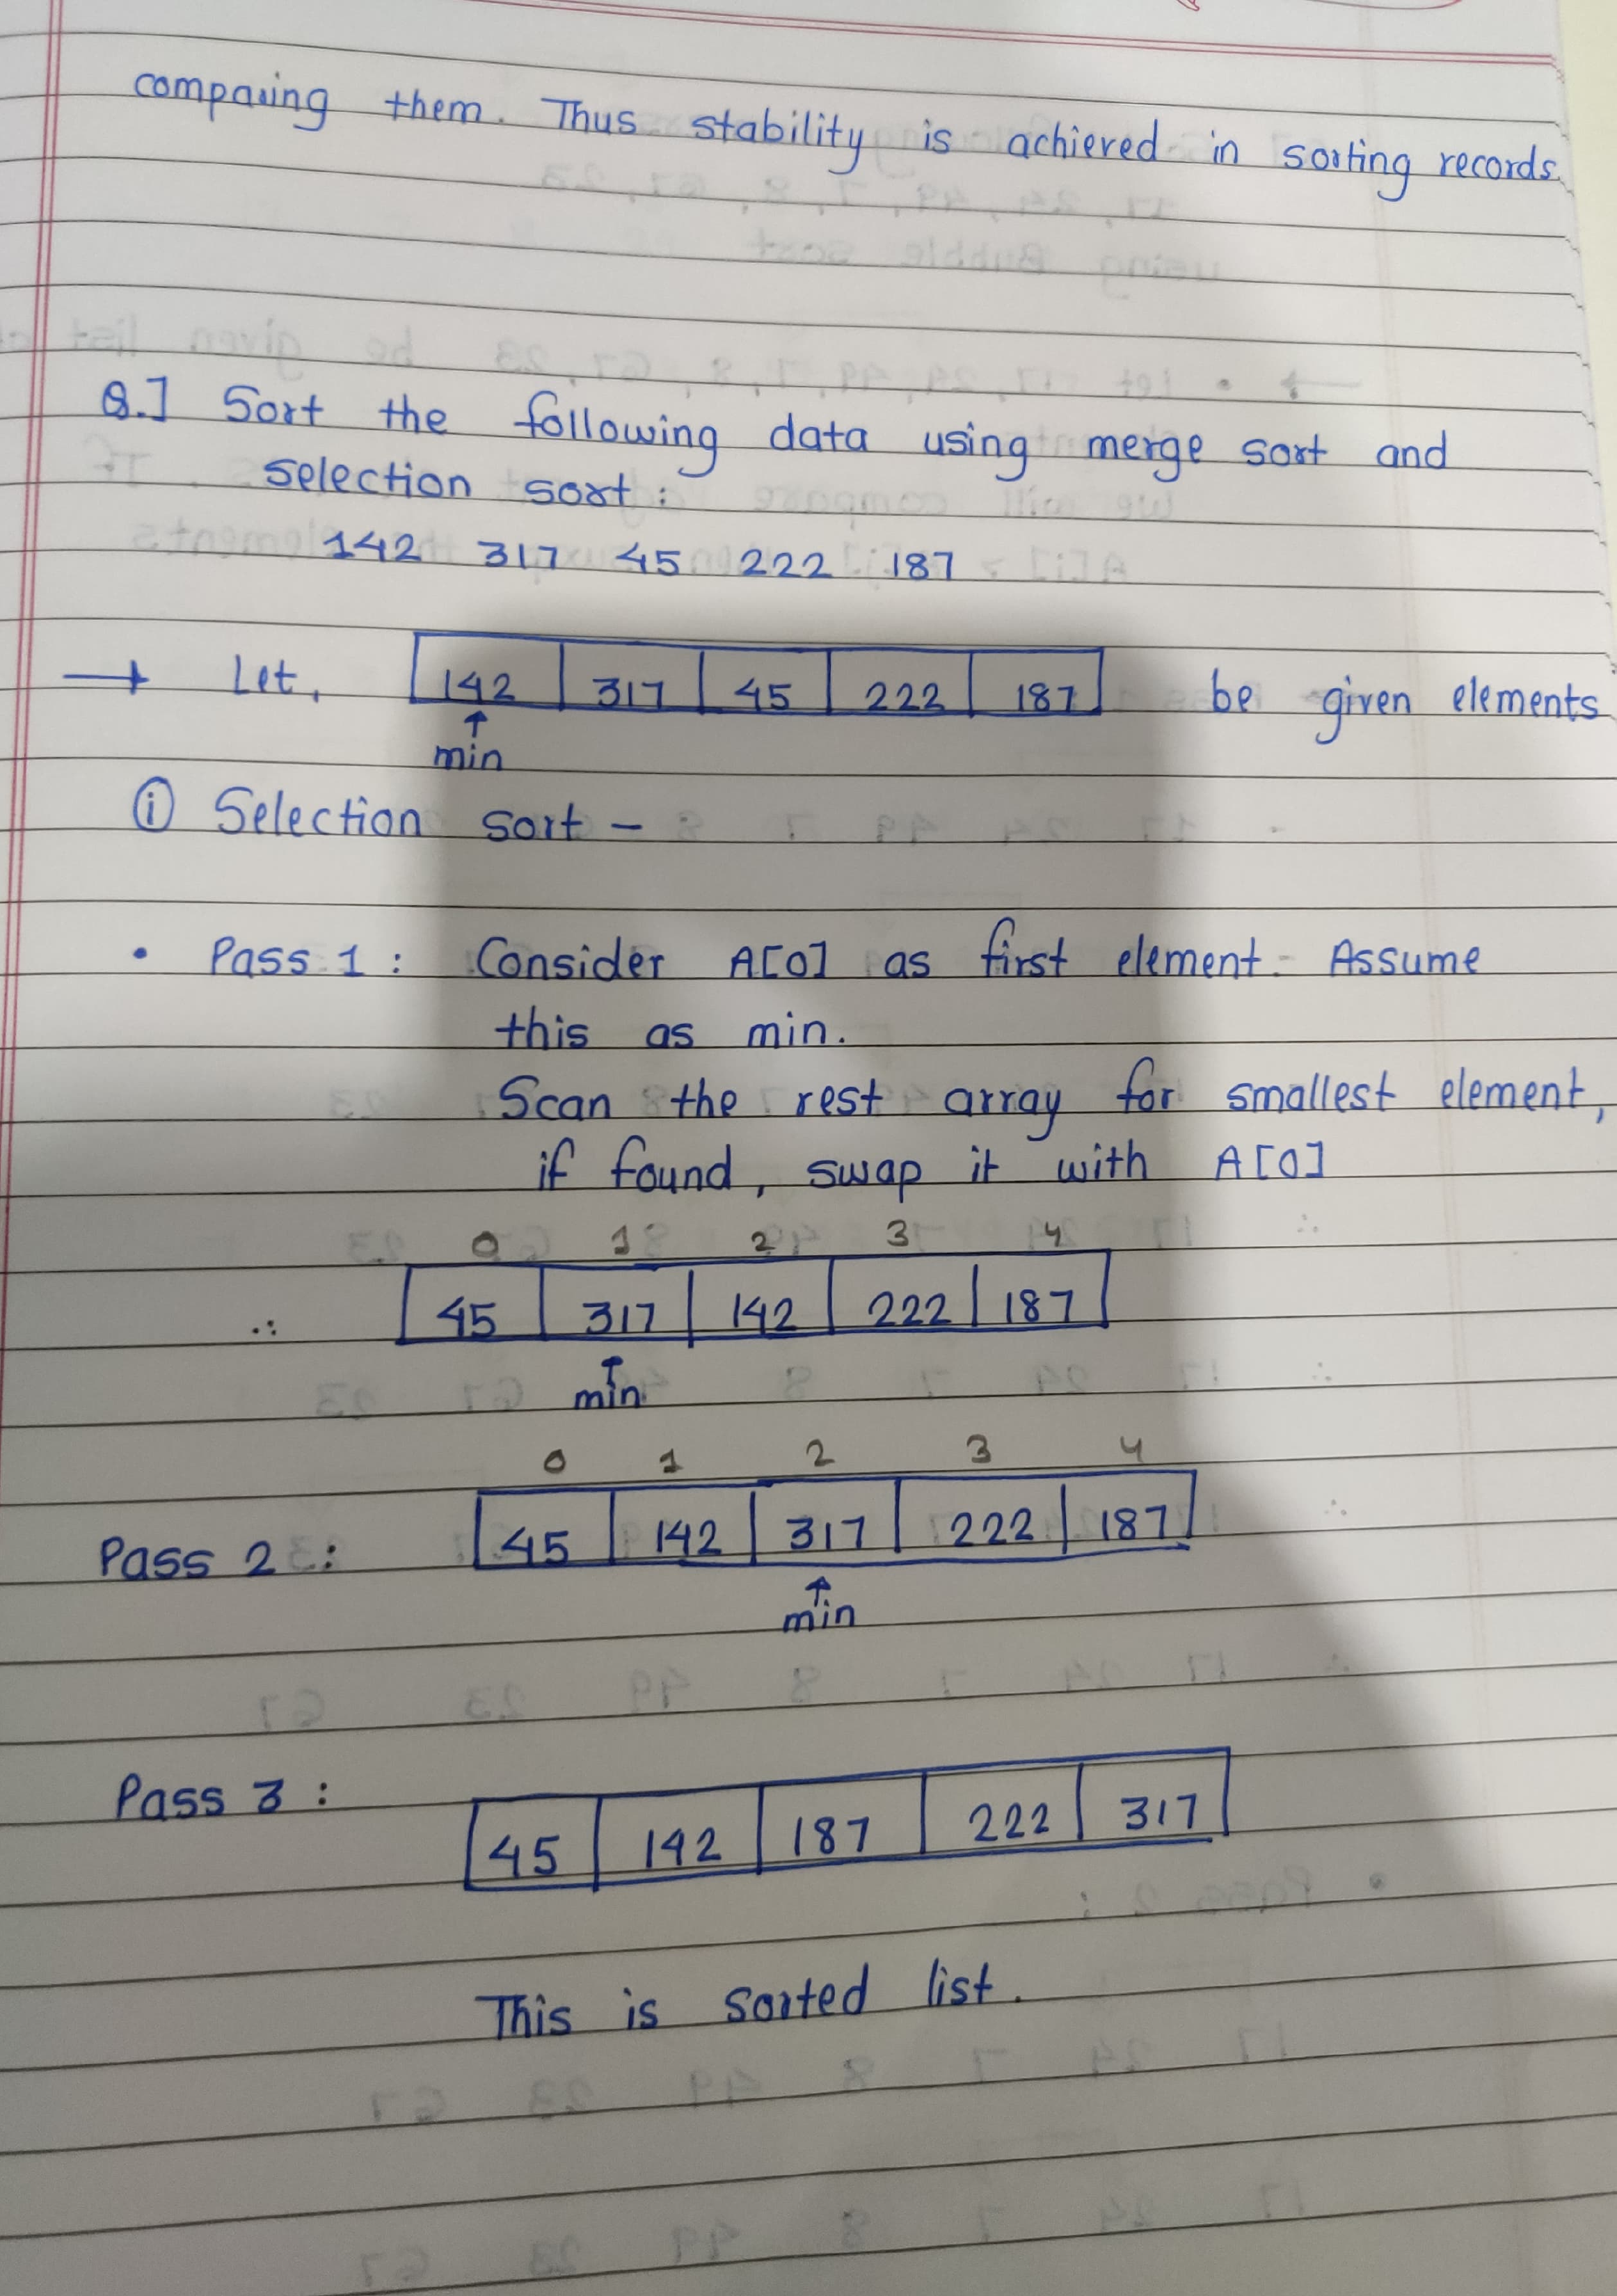 comparing them. Thus stability is achieved in sorting records.
Q.] Sort the following data using merge sort and
selection sort:
142 317 45 222 187
→ Let, 142 317 45 222 187 be given elements
↑
min
(i) Selection sort -
• Pass 1 : Consider A[0] as first element. Assume
this as min.
Scan the rest array for smallest element,
if found, swap it with A[0]
0 1 2 3 4
∴ 45 317 142 222 187
↑
min
0 1 2 3 4
Pass 2 : 45 142 317 222 187
↑
min
Pass 3 : 45 142 187 222 317
This is sorted list.